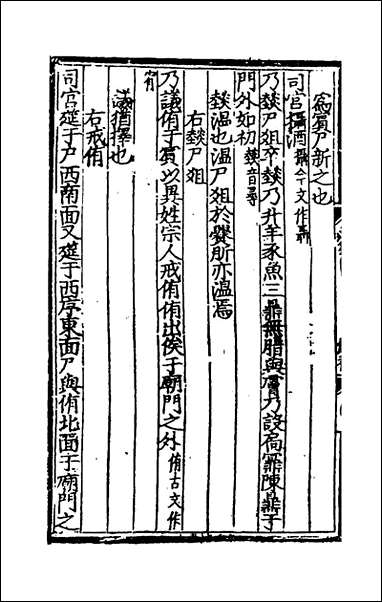 為賓尸新之也
司官攝酒攝今文作聶
乃燅尸俎卒燅乃升羊豕魚三鼎無腊與膚乃設扃鼏陳鼎于
門外如初燅音尋
燅温也温尸俎於爨肵亦温焉
右燅尸俎
乃議侑于賓以異姓宗人戒侑侑出俟于廟門之外侑古文作
宥
議猶擇也
右戒侑
司宫筵于尸西南面又筵于西序東面尸與侑北面于廟門之